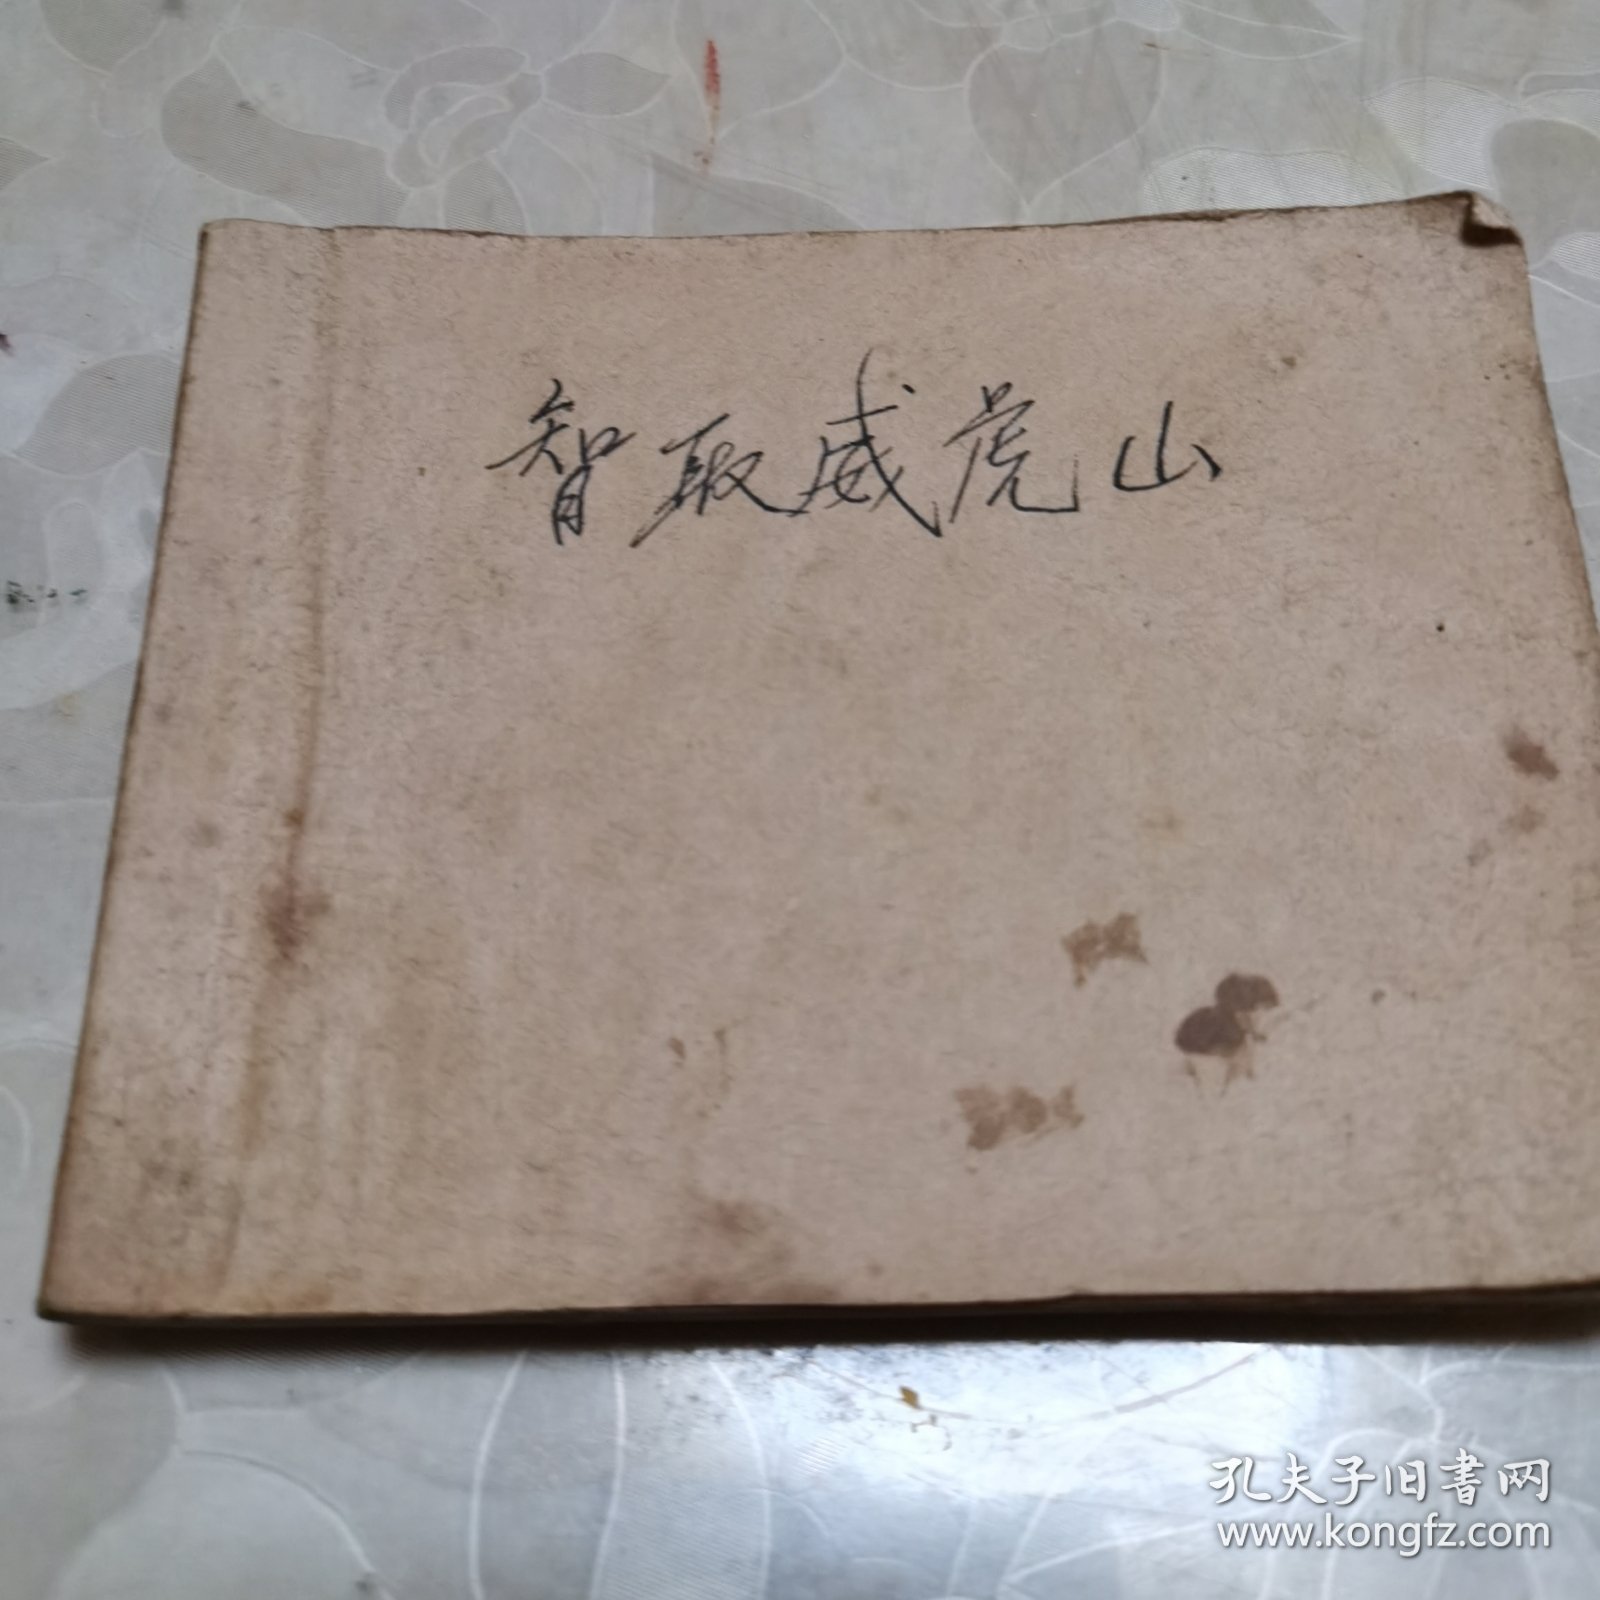 智取威虎山
孔夫子旧书网
www.kongfz.com